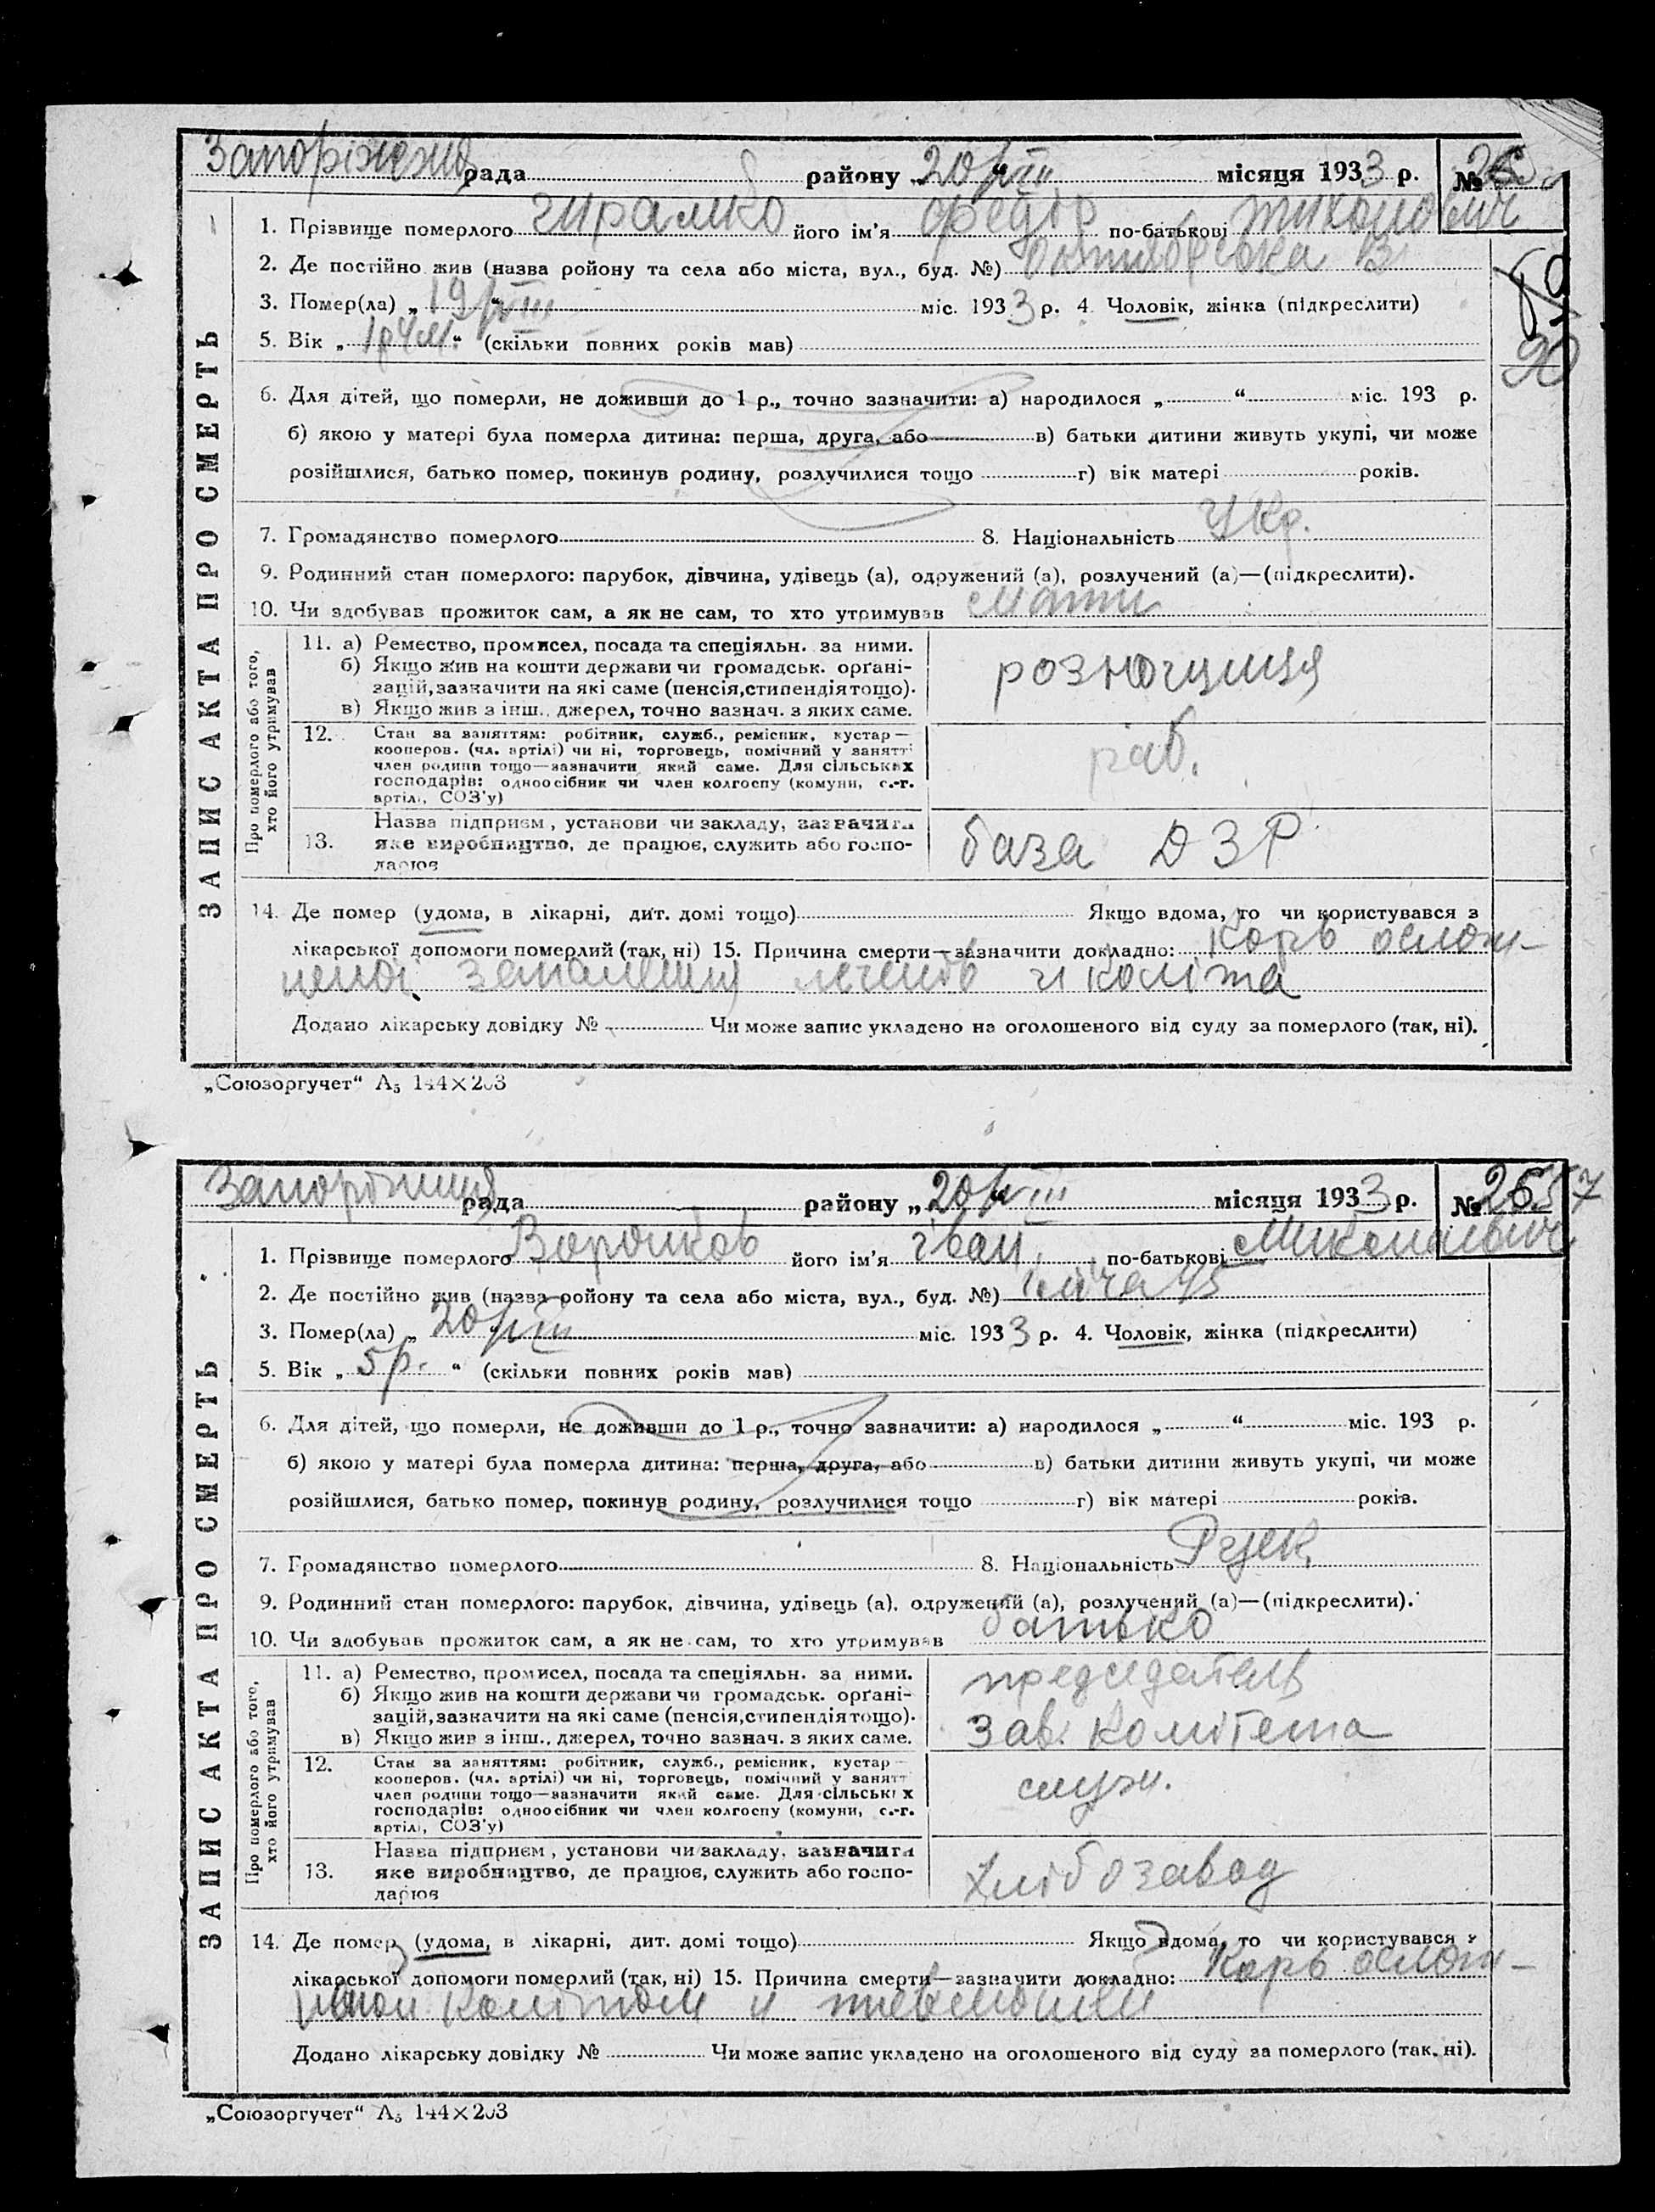 Запоріжжя рада район у „20/VIII“ місяця 1933 р. №
1. Прізвище померлого його ім'я Федір по-батькові Тихонович
2. Де постійно жив (назва ройону та села або міста, вул., буд. №)
3. Помер(ла) „19/VIII“ міс. 1933 р. 4. Чоловік, жінка (підкреслити)
5. Вік „1р 4м.“ (скільки повних років мав)
6. Для дітей, що померли, не доживши до 1 р., точно зазначити: а) народилося „ “ міс. 193 р.
б) якою у матері була померла дитина: перша, друга, або в) батьки дитини живуть укупі, чи може
розійшлися, батько помер, покинув родину, розлучилися тощо г) вік матері років.
7. Громадянство померлого 8. Національність Укр.
9. Родинний стан померлого: парубок, дівчина, удівець (а), одружений (а), розлучений (а)—(підкреслити).
10. Чи здобував прожиток сам, а як не сам, то хто утримував мати
ЗАПИС АКТА ПРО СМЕРТЬ
Про померлого або того,
хто його утримував
11. а) Ремество, промисел, посада та спеціяльн. за ними.
б) Якщо жив на кошти держави чи громадськ. орґані-
зацій, зазначити на які саме (пенсія, стипендія тощо).
в) Якщо жив з інш. джерел, точно зазнач. з яких саме.
розносчиця
12. Стан за заняттям: робітник, служб., ремісник, кустар—
кооперов. (чл. артілі) чи ні, торговець, помічний у занятті
член родини тощо—зазначити який саме. Для сільських
господарів: одноосібник чи член колгоспу (комуни, с.-г.
артілі, СОЗ'у)
раб.
13. Назва підприєм, установи чи закладу, зазначити
яке виробництво, де працює, служить або госпо-
дарює
база ДЗР
14. Де помер (удома, в лікарні, дит. домі тощо) Якщо вдома, то чи користувався з
лікарської допомоги померлий (так, ні) 15. Причина смерти—зазначити докладно: Корь ослож-
и коліта
Додано лікарську довідку № Чи може запис укладено на оголошеного від суду за померлого (так, ні).
„Союзоргучет“ А₅ 144×203
рада району „20/VIII“ місяця 1933 р. № 2657
1. Прізвище померлого його ім'я Іван по-батькові Миколаевич
2. Де постійно жив (назва ройону та села або міста, вул., буд. №)
3. Помер(ла) „20/VIII“ міс. 1933 р. 4. Чоловік, жінка (підкреслити)
5. Вік „5 р.“ (скільки повних років мав)
6. Для дітей, що померли, не доживши до 1 р., точно зазначити: а) народилося „ “ міс. 193 р.
б) якою у матері була померла дитина: перша, друга, або в) батьки дитини живуть укупі, чи може
розійшлися, батько помер, покинув родину, розлучилися тощо г) вік матері років.
7. Громадянство померлого 8. Національність Руск.
9. Родинний стан померлого: парубок, дівчина, удівець (а), одружений (а), розлучений (а)—(підкреслити).
10. Чи здобував прожиток сам, а як не сам, то хто утримував батько
ЗАПИС АКТА ПРО СМЕРТЬ
Про померлого або того,
хто його утримував
11. а) Ремество, промисел, посада та спеціяльн. за ними.
б) Якщо жив на кошти держави чи громадськ. орґані-
зацій, зазначити на які саме (пенсія, стипендія тощо).
в) Якщо жив з інш., джерел, точно зазнач. з яких саме.
председатель
зав. комітета
12. Стан за заняттям: робітник, служб., ремісник, кустар—
кооперов. (чл. артілі) чи ні, торговець, помічний у занятт
член родини тощо—зазначити який саме. Для сільських
господарів: одноосібник чи член колгоспу (комуни, с.-г.
артілі, СОЗ'у)
служ.
13. Назва підприєм, установи чи закладу, зазначити
яке виробництво, де працює, служить або госпо-
дарює
Хлібозавод
14. Де помер (удома, в лікарні, дит. домі тощо) Якщо вдома, то чи користувався з
лікарської допомоги померлий (так, ні) 15. Причина смерти—зазначити докладно: Корь ослож-
колітом и
Додано лікарську довідку № Чи може запис укладено на оголошеного від суду за померлого (так, ні).
„Союзоргучет“ А₅ 144×203